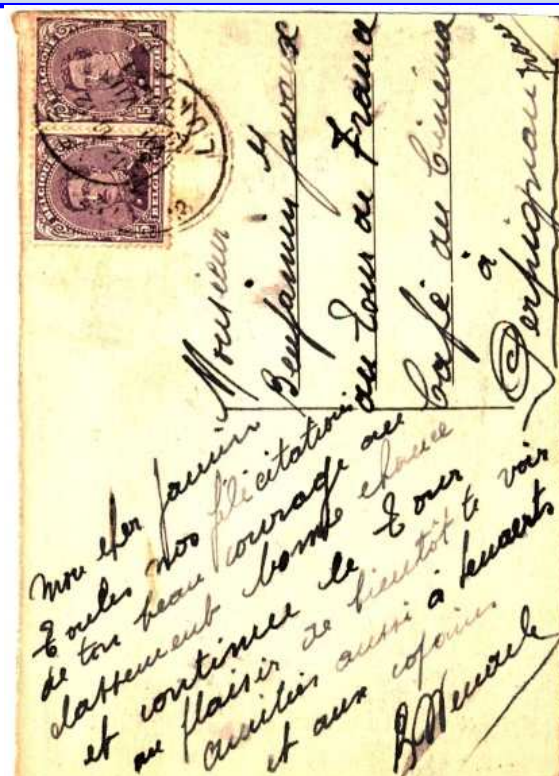 Monsieur
Benjamin Javaux
au Tour de France
Café du Cinéma
à
Perpignan
mon cher Jamin
Toutes nos félicitations
de ton beau courage au
classement bonne chance
et continue le Tour
au plaisir de bientôt te voir
amitiés aussi à Lenaerts
et aux copains
BELGIQUE
BELGIË
BELGIQUE
BELGIË